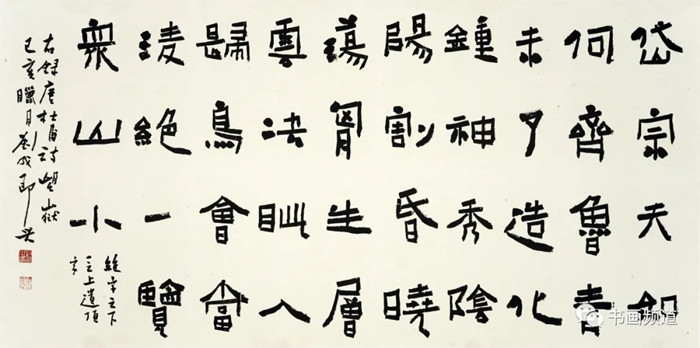 岱宗夫如
何齊魯青
未了造化
鍾神秀陰
陽割昏曉
蕩胷生層
雲決眦入
歸鳥會當
凌絕一覽
衆山小
絕字之下
一之上遺頂
字
右錄唐杜甫詩望嶽
己亥臘月劉
书画频道